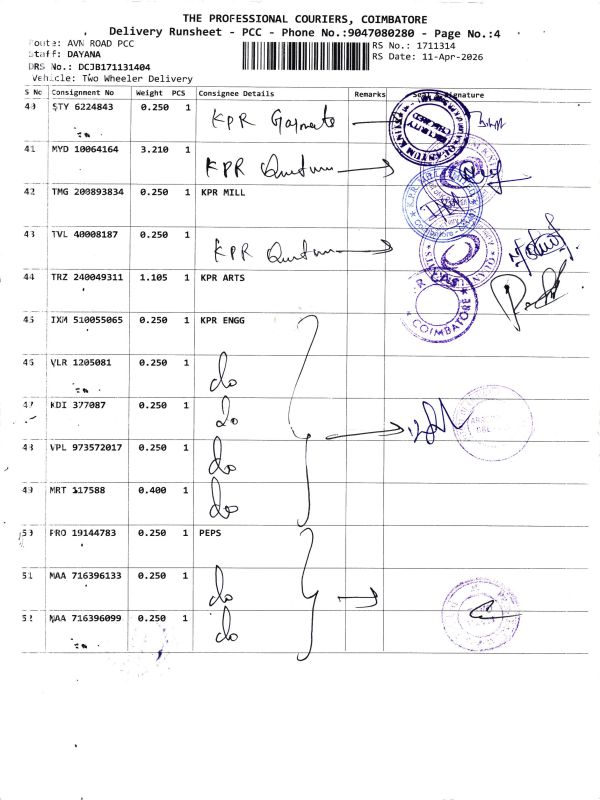 THE PROFESSIONAL COURIERS, COIMBATORE
Delivery Runsheet - PCC - Phone No.:9047080280 - Page No.:4
Route: AVN ROAD PCC
Staff: DAYANA
DRS No.: DCJB171131404
Vehicle: Two Wheeler Delivery
RS No.: 1711314
RS Date: 11-Apr-2026
S No Consignment No Weight PCS Consignee Details Remarks Signature
40 STY 6224843 0.250 1 KPR
41 MYD 10064164 3.210 1 KPR Quantum
42 TMG 200893834 0.250 1 KPR MILL
43 TVL 40008187 0.250 1 KPR Quantum
44 TRZ 240049311 1.105 1 KPR ARTS
45 IXM 510055065 0.250 1 KPR ENGG
46 VLR 1205081 0.250 1 do
47 KDI 377087 0.250 1 do
48 VPL 973572017 0.250 1 do
49 MRT 117588 0.400 1 do
50 PRO 19144783 0.250 1 PEPS
51 MAA 716396133 0.250 1 do
52 MAA 716396099 0.250 1 do
COIMBATORE